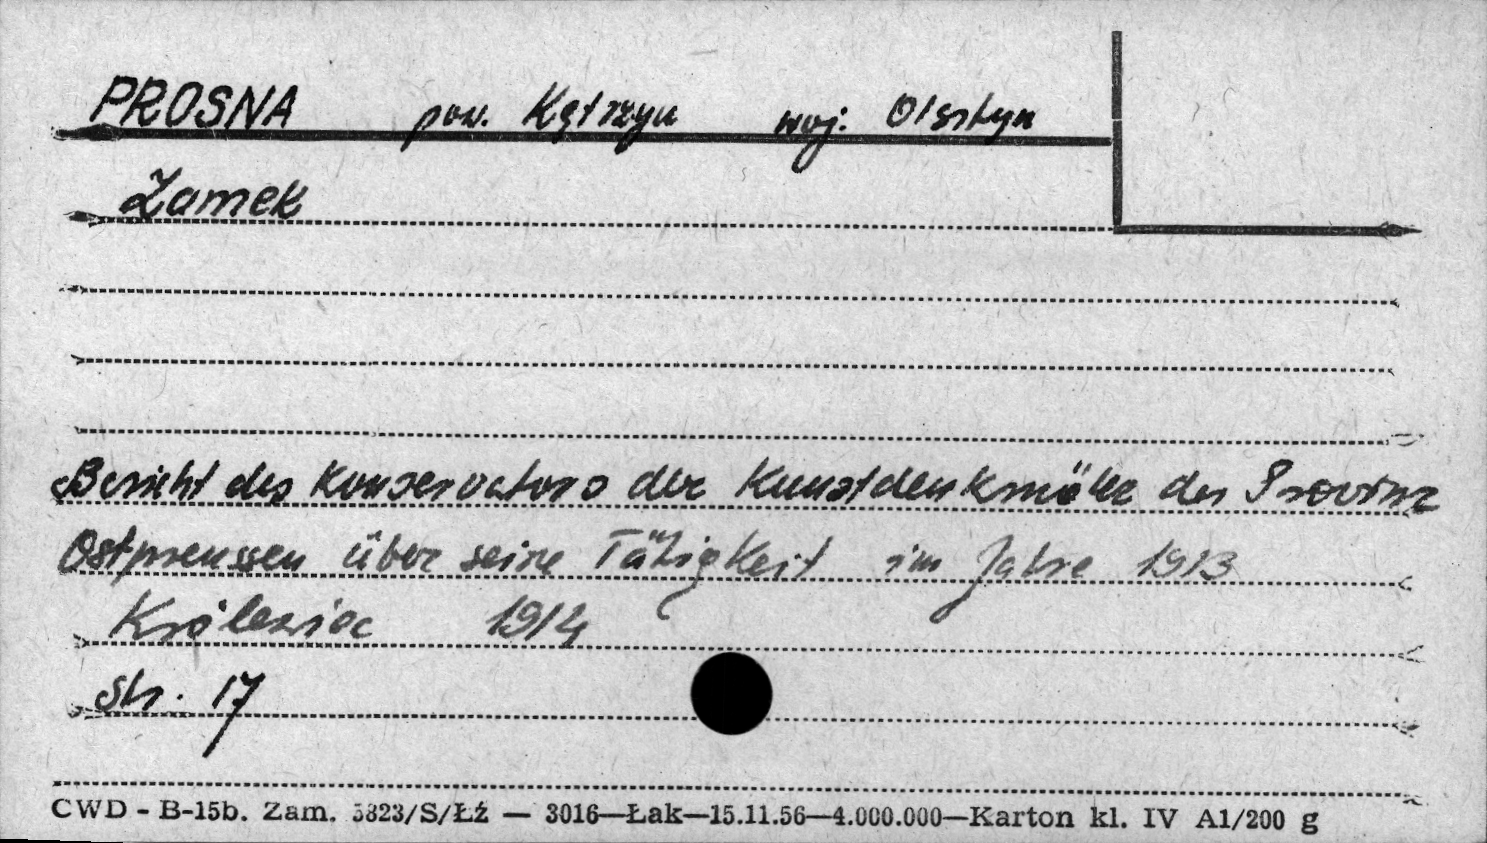 PROSNA pow. Kętrzyn woj. Olsztyn
Zamek
Bericht des Konservators der Kunstdenkmäler der Provinz
Ostpreussen über seine Tätigkeit im Jahre 1913
Królewiec 1914
str. 17
CWD - B-15b. Zam. 5823/S/Łź — 3016—Łak—15.11.56—4.000.000—Karton kl. IV A1/200 g